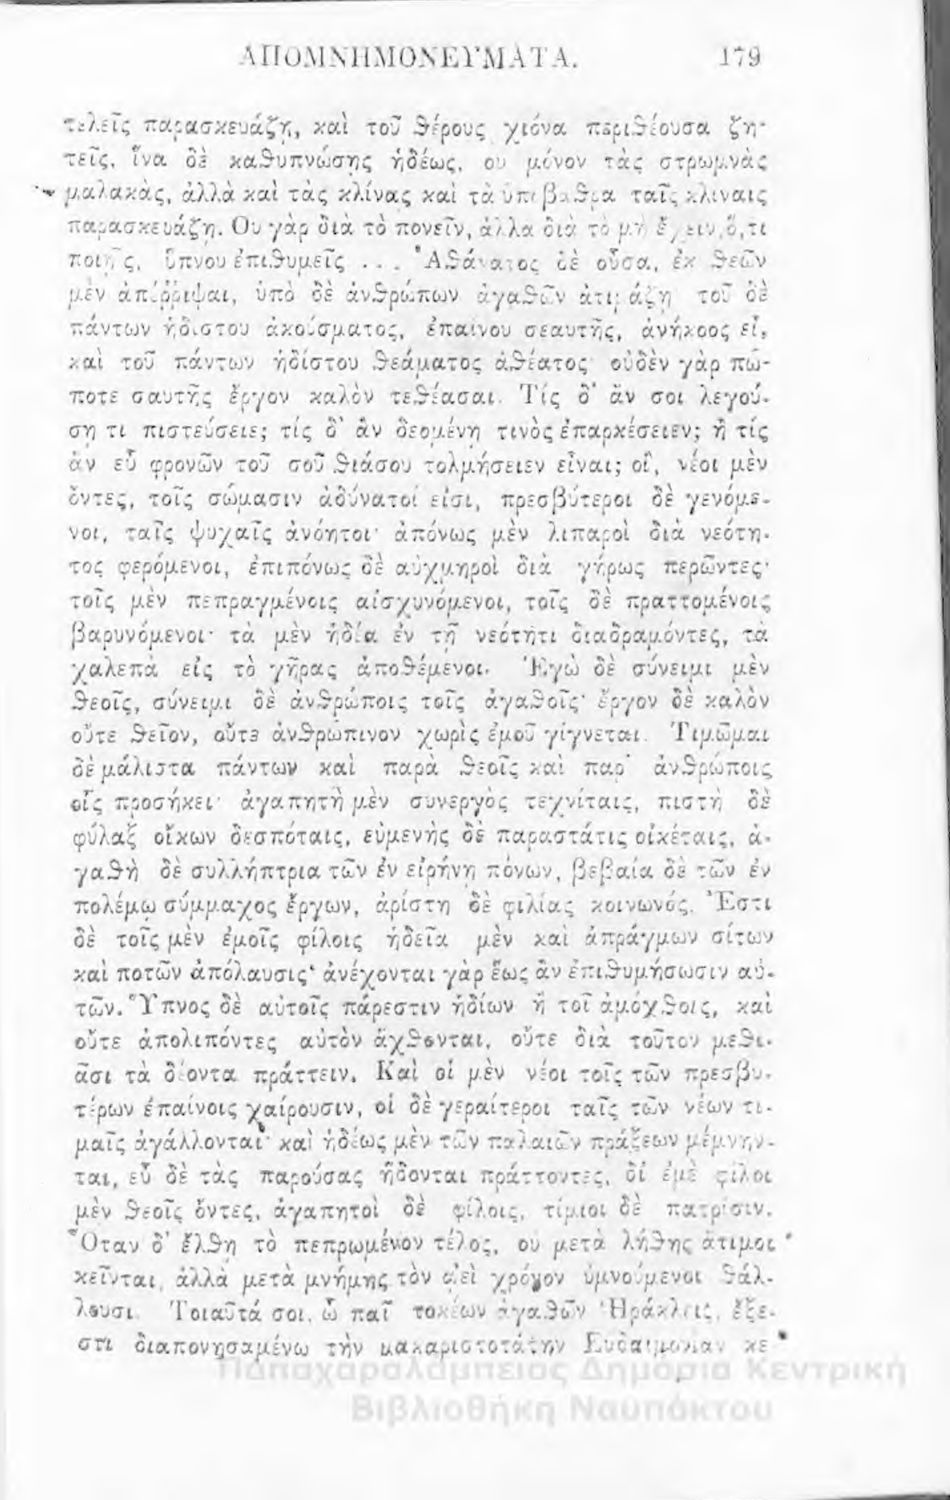 ΑΠΟΜΝΗΜΟΝΕΥΜΑΤΑ. 179
τελεῖς παρασκευάζῃ, καὶ τοῦ θέρους χιόνα περιθέουσα ζη-
τεῖς, ἵνα δὲ καθυπνώσῃς ἡδέως, οὐ μόνον τὰς στρωμνὰς
μαλακὰς, ἀλλὰ καὶ τὰς κλίνας καὶ τὰ ὑπόβαθρα ταῖς κλίναις
παρασκευάζῃ. Οὐ γὰρ διὰ τὸ πονεῖν, ἀλλὰ διὰ τὸ μὴ ἔχειν, ὅ,τι
ποιῇς, ὕπνου ἐπιθυμεῖς ... Ἀθάνατος δὲ οὖσα, ἐκ θεῶν
μὲν ἀπέῤῥιψαι, ὑπὸ δὲ ἀνθρώπων ἀγαθῶν ἀτιμάζῃ τοῦ δὲ
πάντων ἡδίστου ἀκούσματος, ἐπαίνου σεαυτῆς, ἀνήκοος εἶ,
καὶ τοῦ πάντων ἡδίστου θεάματος ἀθέατος· οὐδὲν γὰρ πώ-
ποτε σαυτῆς ἔργον καλὸν τεθέασαι. Τίς δ' ἄν σοι λεγού-
σῃ τι πιστεύσειε; τίς δ' ἂν δεομένῃ τινὸς ἐπαρκέσειεν; ἢ τίς
ἂν εὖ φρονῶν τοῦ σοῦ θιάσου τολμήσειεν εἶναι; οἵ, νέοι μὲν
ὄντες, τοῖς σώμασιν ἀδύνατοί εἰσι, πρεσβύτεροι δὲ γενόμε-
νοι, ταῖς ψυχαῖς ἀνόητοι· ἀπόνως μὲν λιπαροὶ διὰ νεότη-
τος φερόμενοι, ἐπιπόνως δὲ αὐχμηροὶ διὰ γήρως περῶντες·
τοῖς μὲν πεπραγμένοις αἰσχυνόμενοι, τοῖς δὲ πραττομένοις
βαρυνόμενοι· τὰ μὲν ἡδέα ἐν τῇ νεότητι διαδραμόντες, τὰ
χαλεπὰ εἰς τὸ γῆρας ἀποθέμενοι. Ἐγὼ δὲ σύνειμι μὲν
θεοῖς, σύνειμι δὲ ἀνθρώποις τοῖς ἀγαθοῖς· ἔργον δὲ καλὸν
οὔτε θεῖον, οὔτε ἀνθρώπινον χωρὶς ἐμοῦ γίγνεται. Τιμῶμαι
δὲ μάλιστα πάντων καὶ παρὰ θεοῖς καὶ παρ' ἀνθρώποις
οἷς προσήκει· ἀγαπητὴ μὲν συνεργὸς τεχνίταις, πιστὴ δὲ
φύλαξ οἴκων δεσπόταις, εὐμενὴς δὲ παραστάτις οἰκέταις, ἀ-
γαθὴ δὲ συλλήπτρια τῶν ἐν εἰρήνῃ πόνων, βεβαία δὲ τῶν ἐν
πολέμῳ σύμμαχος ἔργων, ἀρίστη δὲ φιλίας κοινωνός. Ἔστι
δὲ τοῖς μὲν ἐμοῖς φίλοις ἡδεῖα μὲν καὶ ἀπράγμων σίτων
καὶ ποτῶν ἀπόλαυσις· ἀνέχονται γὰρ ἕως ἂν ἐπιθυμήσωσιν αὐ-
τῶν. Ὕπνος δὲ αὐτοῖς πάρεστιν ἡδίων ἢ τοῖ ἀμόχθοις, καὶ
οὔτε ἀπολιπόντες αὐτὸν ἄχθονται, οὔτε διὰ τοῦτον μεθι-
ᾶσι τὰ δέοντα πράττειν. Καὶ οἱ μὲν νέοι τοῖς τῶν πρεσβυ-
τέρων ἐπαίνοις χαίρουσιν, οἱ δὲ γεραίτεροι ταῖς τῶν νέων τι-
μαῖς ἀγάλλονται· καὶ ἡδέως μὲν τῶν παλαιῶν πράξεων μέμνην-
ται, εὖ δὲ τὰς παρούσας ἥδονται πράττοντες, δι' ἐμὲ φίλοι
μὲν θεοῖς ὄντες, ἀγαπητοὶ δὲ φίλοις, τίμιοι δὲ πατρίσιν.
Ὅταν δ' ἔλθῃ τὸ πεπρωμένον τέλος, οὐ μετὰ λήθης ἄτιμοι
κεῖνται, ἀλλὰ μετὰ μνήμης τὸν ἀεὶ χρόνον ὑμνούμενοι θάλ-
λουσι. Τοιαῦτά σοι, ὦ παῖ τοκέων ἀγαθῶν Ἡράκλεις, ἔξε-
στι διαπονησαμένῳ τὴν μακαριστοτάτην Εὐδαιμονίαν κε
Παπαχαραλάμπειος Δημόσια Κεντρική
Βιβλιοθήκη Ναυπάκτου